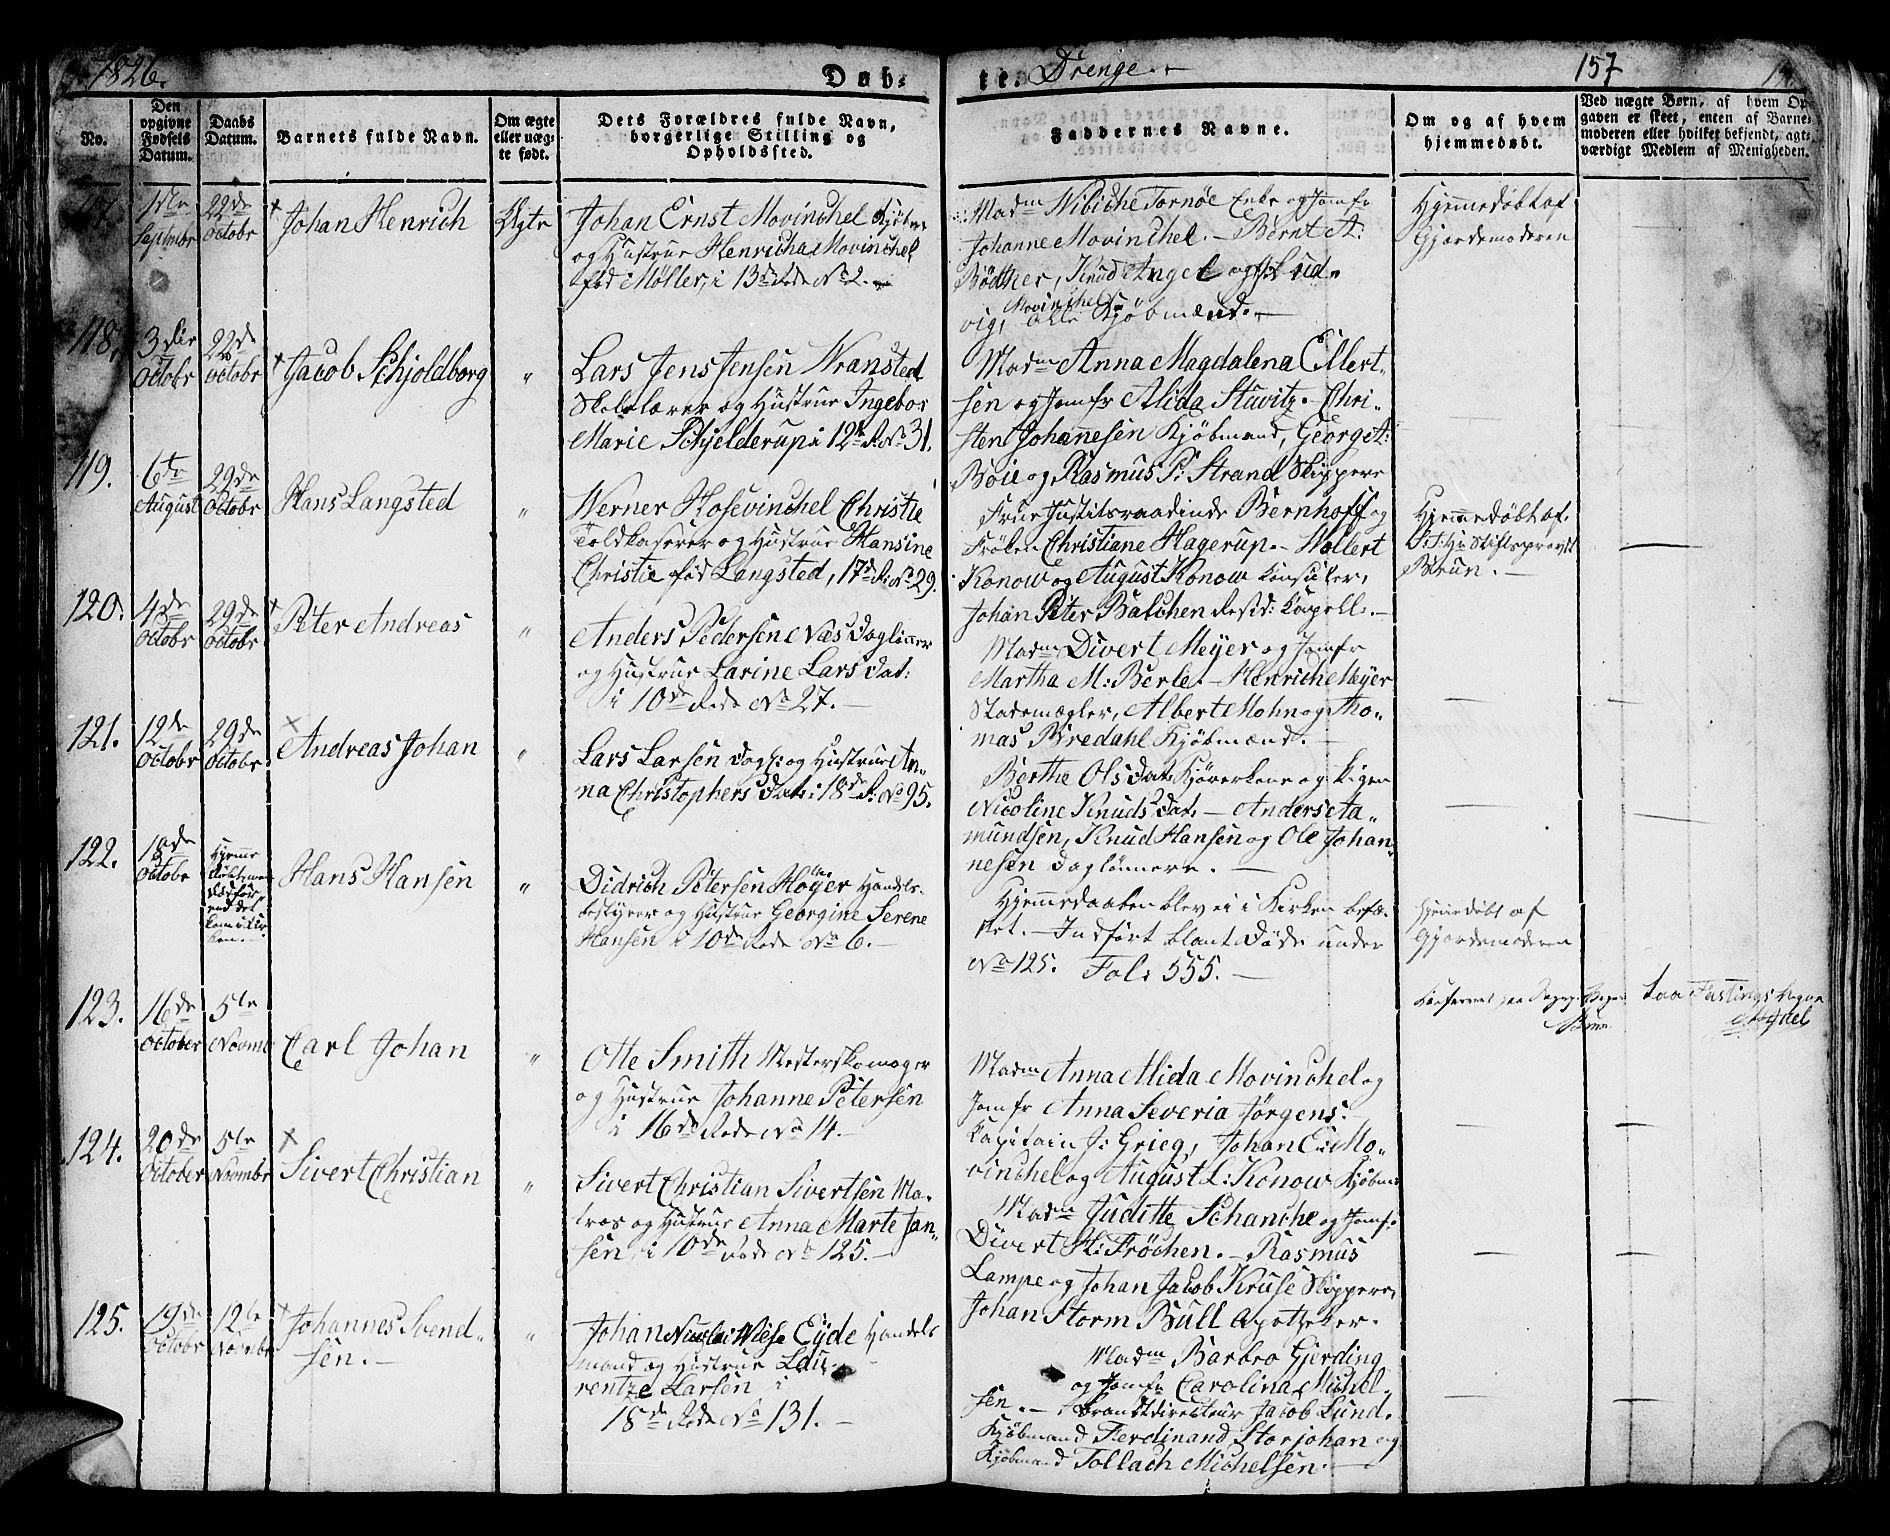 1826.
Døb-
te. Drenge.
157
No.
Den opgivne Fødsels Datum.
Daabs Datum.
Barnets fulde Navn.
Om ægte eller uægte født.
Dets Forældres fulde Navn, borgerlige Stilling og Opholdssted.
Faddernes Navne.
Om og af hvem hjemmedøbt.
Ved uægte Børn, af hvem Opgaven er skeet, enten af Barnemoderen eller hvilket bekjendt, agtværdigt Medlem af Menigheden.
117.
Septembr
22de Octobr
Johan Henrich
Ægte
Johan Ernst Mowinckel Kjøbm:
og Hustrue Henricha Mowinckel
fød Møller, i 13de Rode No 2.
Madm Wibiche Tornöe Enke og Jomfr
Johanne Mowinckel. Bernt A:
Bödtker, Knud Angel og Lud-
vig Mowinckel, alle Kjöbmænd.
Hjemmedöbt af
Gjordemoderen
118.
3die Octobr
22de Octobr
Jacob Schjoldborg
"
Lars Jens Jensen Wransted
Skolelærer og Hustrue Ingebor
Marie Schjelderup i 12te R. No 31.
Madm Anna Magdalena Ellert-
sen og Jomfr Alida Stuwitz. Chri-
sten Johannesen Kjöbmand, George A:
Böie og Rasmus P: Strand Skippere
119.
6te August
29de Octobr
Hans Langsted
"
Werner Hosewinckel Christie
Toldkaserer og Hustrue Hansine
Christie fød Langsted, 17de R. No 29.
Frue Justitsraadinde Bernhoff og
Frøken Christiane Hagerup. Wollert
Konow og August Konow Konsuler,
Johan Peter Balchen Resid: Kapell.
Hjemmedöbt af
Hr Stiftsprovst
Bruun.
120.
4de Octobr
29de Octobr
Peter Andreas
"
Anders Pedersen Næs Daglönner
og Hustrue Larine Lars Dat:
i 10de Rode No 27.
Madm Divert Meyer og Jomfr
Martha M: Berle. Henrich Meyer
Stadsmægler, Albert Mohn og Tho-
mas Bredahl Kjöbmænd.
121.
12de Octobr
29de Octobr
Andreas Johan
"
Lars Larsen Dagl: og Hustrue An-
na Christophers Dat: i 18de R: No 95.
Berthe Ols Dat: Kjöverkone og Pigen
Nicoline Knuds Dat. Anders A-
mundsen, Knud Hansen og Ole Johan-
nesen Daglönnere.
122.
18de Octobr
Hans Hansen
"
Didrich Petersen Høyer Handels-
bestyrer og Hustrue Georgine Serene
Hansen i 10de Rode No 6.
Hjemmedaaben blev ei i Kirken befæ-
stet. Indfört blant Döde under
No 125. Fol: 555.
Hjemedøbt af
Gjordemoderen
123.
16de October
5te Novmbr
Carl Johan
"
Otte Smith Mesterskomager
og Hustrue Johanne Petersen
i 16de Rode No 14.
Madm Anna Alida Mowinckel og
Jomfr Anna Severia Jörgens:
Kapitain J: Grieg, Johan E: Mo-
winckel og August L: Konow Kjöbm:
124.
20de October
5te Novmbr
Sivert Christian
"
Sivert Christian Sivertsen Ma-
tros og Hustrue Anna Marte Jan-
sen, i 10de Rode No 125.
Madm Juditte Schanche og Jomf:
Divert H: Fröchen. Rasmus
Lampe og Johan Jacob Kruse Skippere,
Johan Storm Bull Apotheker.
125.
19de Octobr
12te Novmbr
Johannes Svend-
sen.
"
Johan Nicolai Wiese Eyde Handels
mand og Hustrue Lau-
rentze Larsen i
18de Rode No 131.
Madm Barbro Gjerding
og Jomfr Carolina Michel-
sen. Branddirecteur Jacob Lund.
Kjöbmand Ferdinand Storjohan og
Kjöbmand Tollach Michelsen.